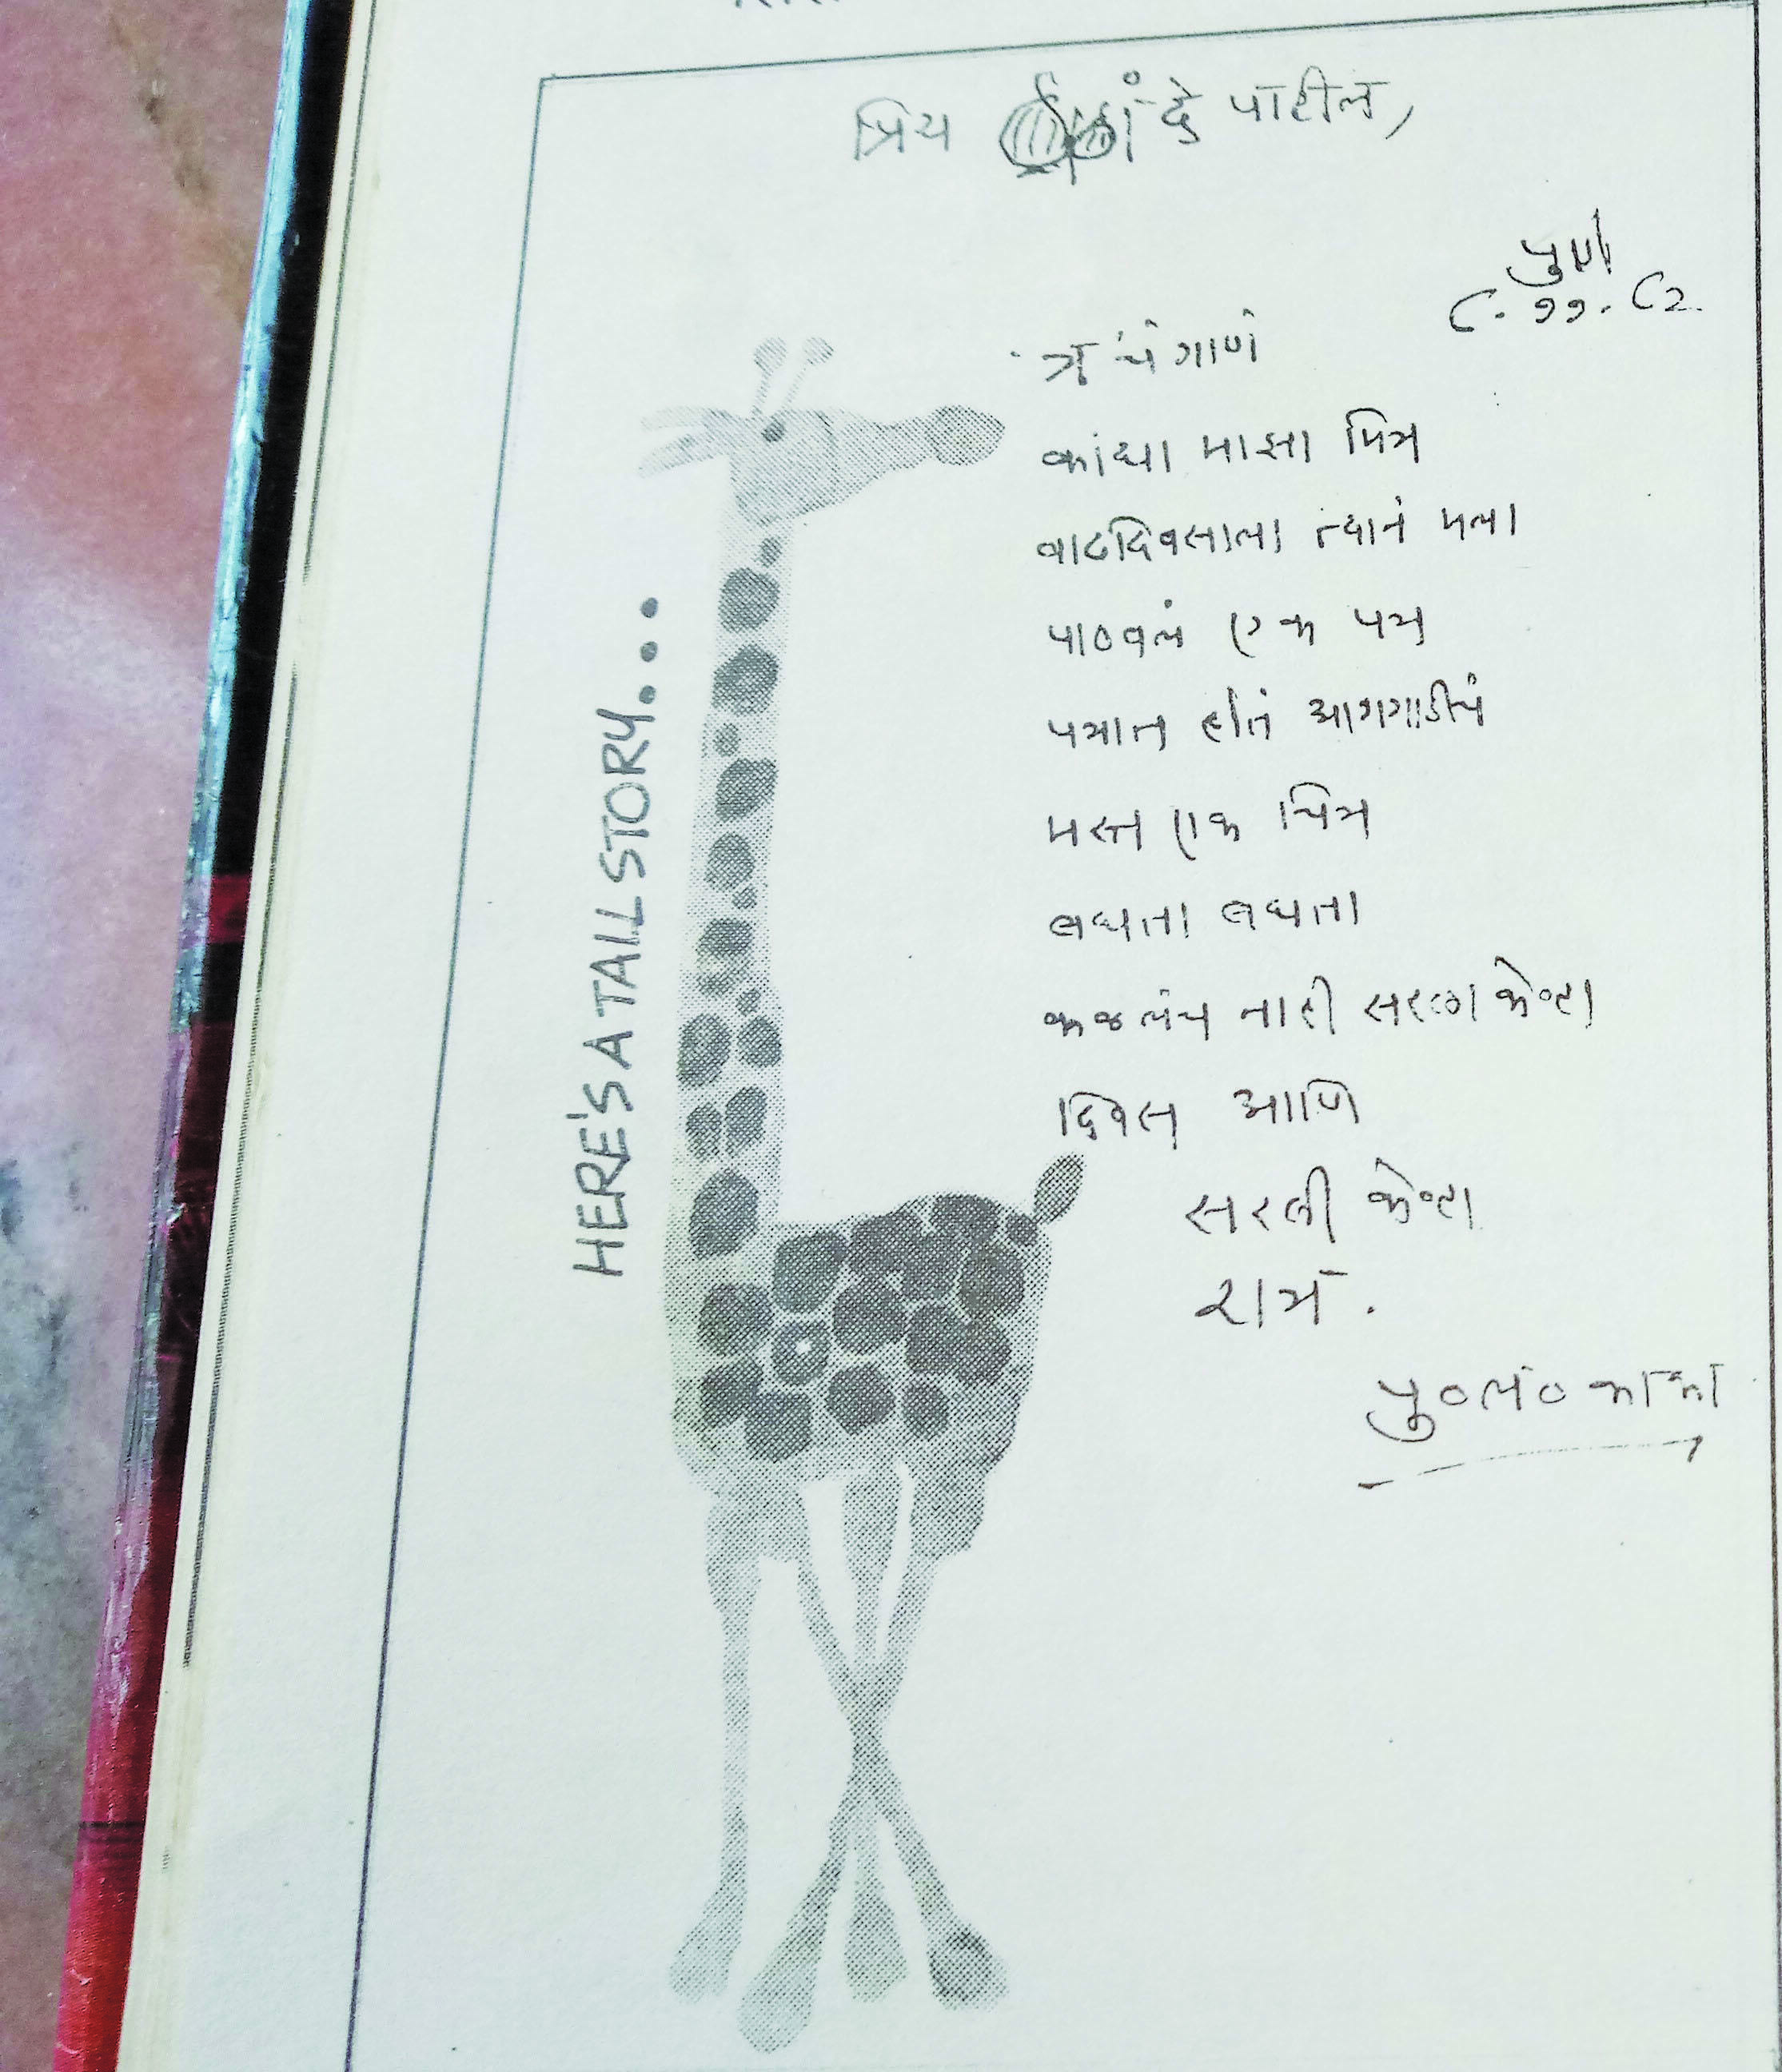 प्रिय कांदे पाटील,
पुणे
८.११.८२.
त्रचं गाणं
कांद्या माझा मित्र
वाढदिवसाला त्यानं मला
पाठवलं एक पत्र
पत्रात होतं आगगाडीचं
मस्त एक चित्र
बघता बघता
कळलंच नाही सरला केव्हा
दिवस आणि
सरली केव्हा
रात्र.
पु०ल०काका
HERE'S A TALL STORY....